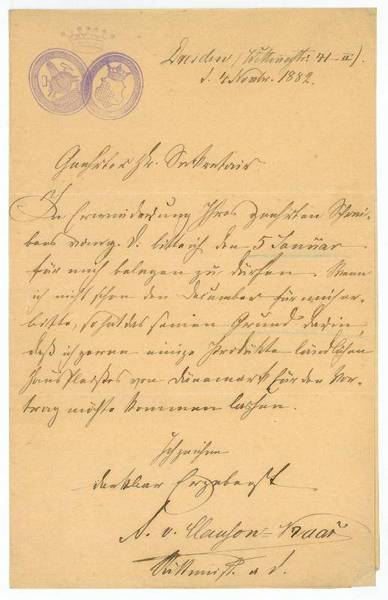 Dresden (Wettinerstr. 41 II).
d. 4 Novbr. 1882.
Geehrter Hr. Secretair.
In Erwiederung Ihres geehrten Schrei-
bens vom d. bitte ich den 5 Januar
für mich belegen zu dürfen. Wenn
ich nicht schon den December für mich er-
bitte, so hat das seinen Grund darin,
daß ich gerne einige Produkte ländlichen
Hausfleißes von Dänemark für den Vor-
trag möchte kommen lassen.
Ich zeichne
dankbar Ergebenst
v. Clauson-Kaas
Rittmstr. a. d.